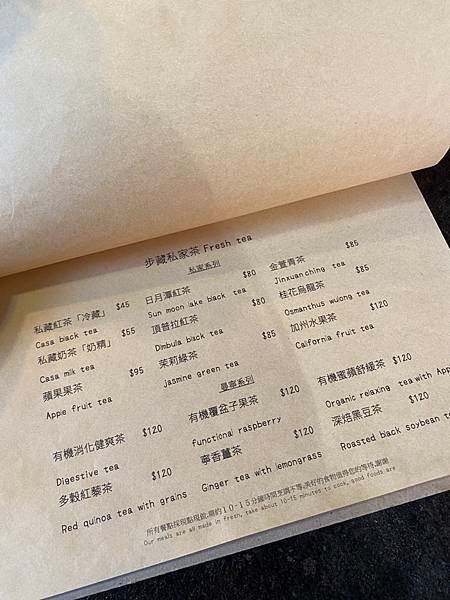 步藏私家茶 Fresh tea
私家系列
私藏紅茶「冷藏」 $45
Casa back tea
私藏奶茶「奶精」 $55
Casa milk tea
蘋果果茶 $95
Apple fruit tea
日月潭紅茶 $80
Sun moon lake back tea
頂普拉紅茶 $80
Dimbula back tea
茉莉綠茶 $85
Jasmine green tea
金萱青茶 $85
Jinxuanching tea
桂花烏龍茶 $85
Osmanthus wulong tea
加州水果茶 $120
Calfornia fruit tea
尋寧系列
有機消化健爽茶 $120
Digestive tea
多穀紅藜茶 $120
Red quinoa tea with grains
有機覆盆子果茶 $120
functional raspberry
寧香薑茶 $120
Ginger tea with lemongrass
有機蜜蘋舒緩茶 $120
Organic relaxing tea with App
深焙黑豆茶 $120
Roasted back soybean te
所有餐點採現點現做,需約10-15分鐘時間烹調不等,美好的食物值得您的等待,謝謝
Our meals are all made in fresh, take about 10-15 minutes to cook, good foods are